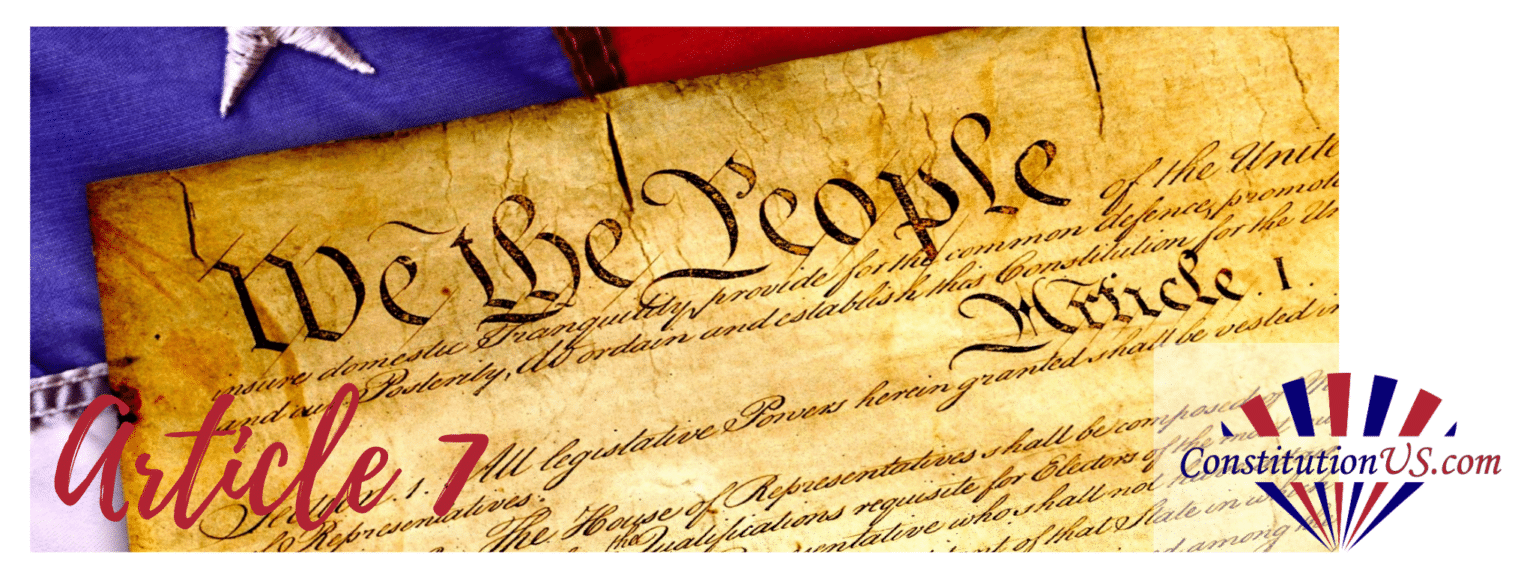 We the People of the Unite
insure domestic Tranquility, provide for the common defence, promote
and our Posterity, do ordain and establish this Constitution for the Un
Article. I.
Section. 1. All legislative Powers herein granted shall be vested in
Representatives.
The House of Representatives shall be composed of
the Qualifications requisite for Electors of the most
entative who shall not
of that State in
among
Article 7
ConstitutionUS.com